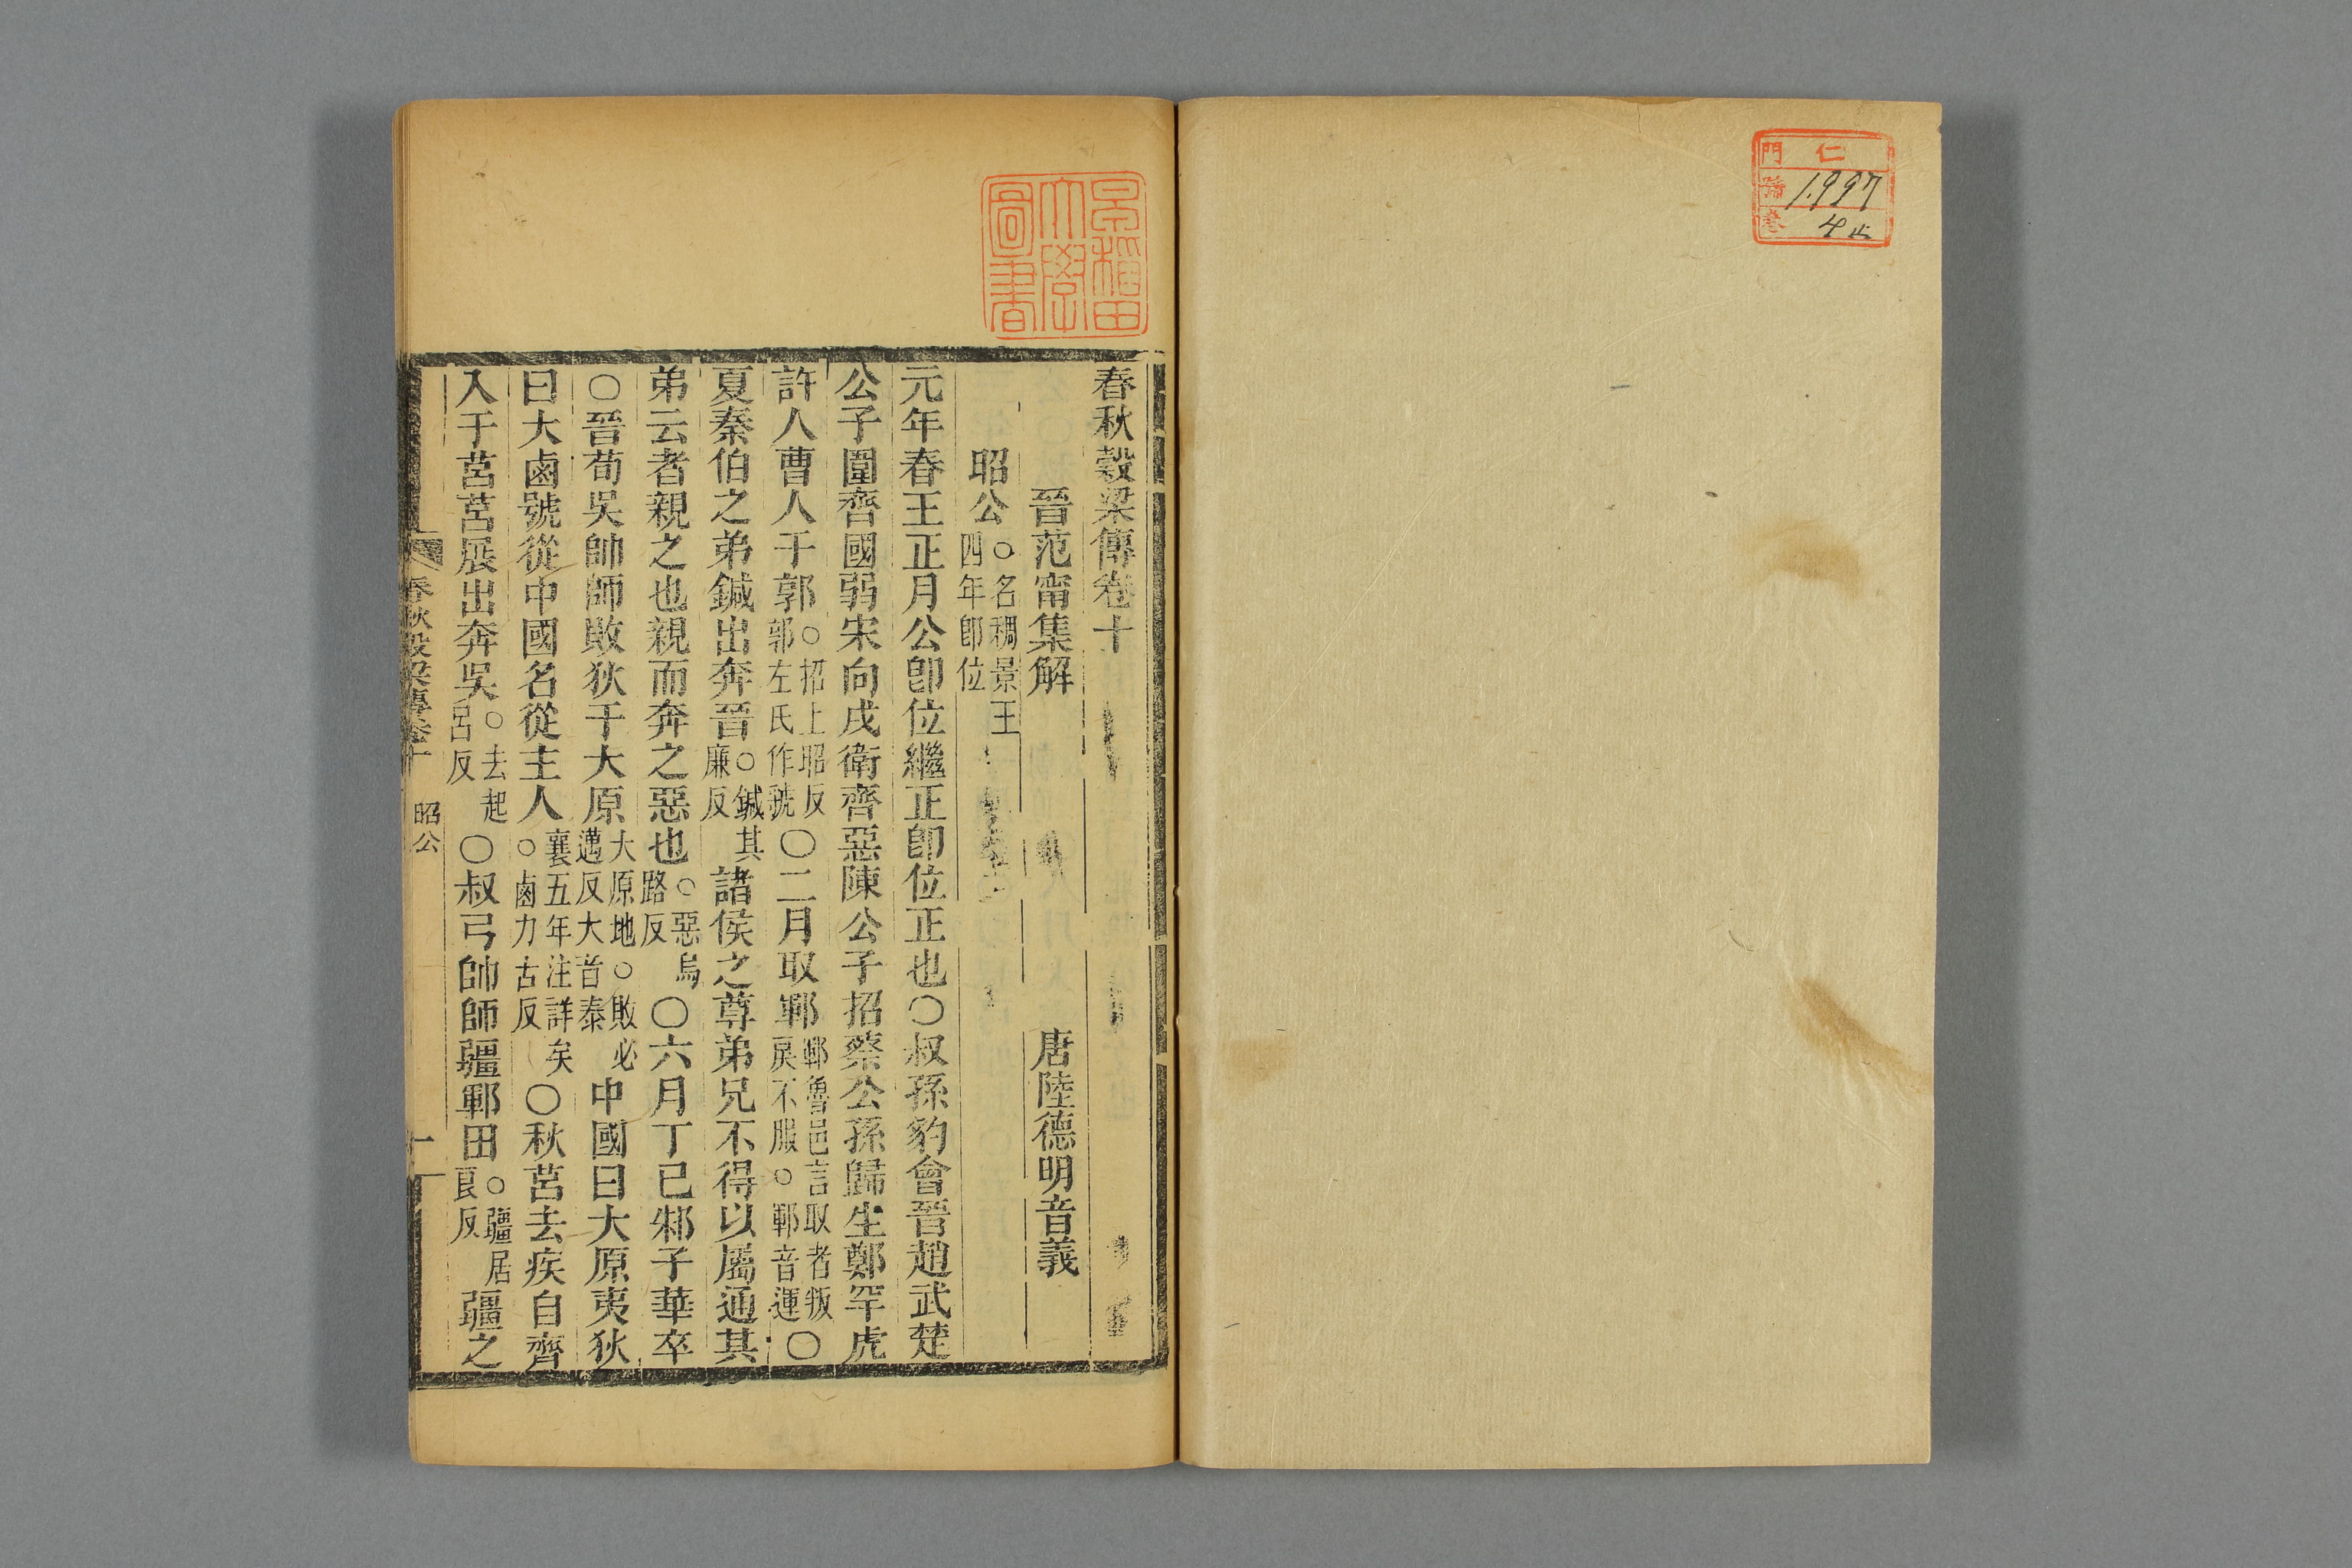 仁門
1997
4止
早稻田大學圖書
春秋穀梁傳卷十
晉范甯集解 唐陸德明音義
昭公○名稠景王四年卽位
元年春王正月公卽位繼正卽位正也○叔孫豹會晉趙武楚
公子圍齊國弱宋向戌衛齊惡陳公子招蔡公孫歸生鄭罕虎
許人曹人于郭○招上昭反郭左氏作虢○二月取鄆鄆魯邑言取者叛戾不服○鄆音運○
夏秦伯之弟鍼出奔晉○鍼其廉反諸侯之尊弟兄不得以屬通其
弟云者親之也親而奔之惡也○惡烏路反○六月丁巳邾子華卒
○晉荀吳帥師敗狄于大原大原地○敗必邁反大音泰中國曰大原夷狄
曰大鹵號從中國名從主人襄五年注詳矣○鹵力古反○秋莒去疾自齊
入于莒莒展出奔吳○去起呂反○叔弓帥師疆鄆田○疆居良反疆之
春秋穀梁傳卷十 昭公 一